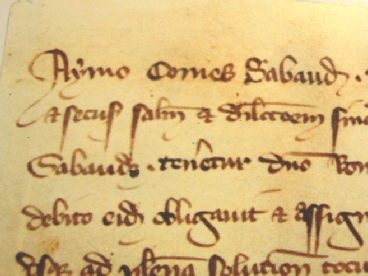 Aymo Comes Sabaud
salm & dilctoem
Sabaud . tenetur dno
debito eid obligauit & assign
ad plena solution